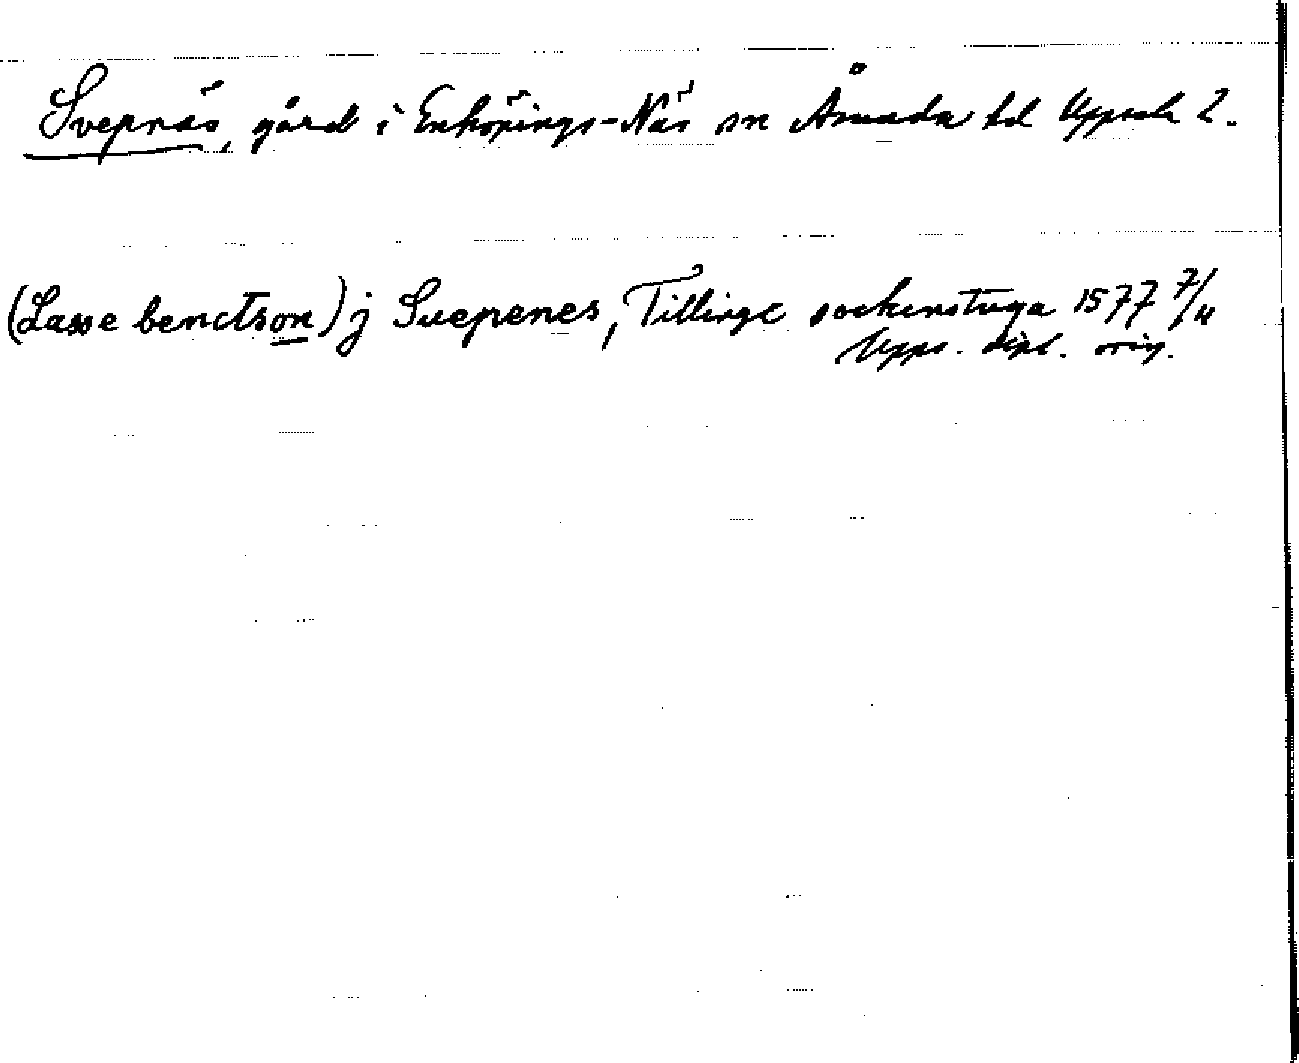 Svepnäs, gård i Enköpings-Näs sn Åsunda hd Uppsala l.
(Lasse benctson) j Suepenes, Tillinge sockenstuga 1577 7/11
Upps. dipl. orig.